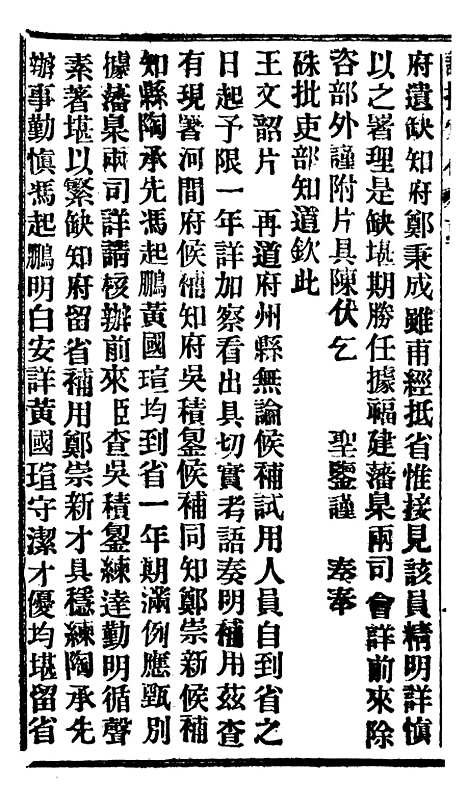 府遺缺知府鄭秉成雖甫經抵省惟接見該員精明詳慎
以之署理是缺堪期勝任據福建藩臬兩司會詳前來除
咨部外謹附片具陳伏乞　聖鑒謹　奏奉
硃批吏部知道欽此
王文韶片　再道府州縣無論候補試用人員自到省之
日起予限一年詳加察看出具切實考語奏明補用茲查
有現署河間府候補知府吳積鋆候補同知鄭崇新候補
知縣陶承先馮起鵬黃國瑄均到省一年期滿例應甄別
據藩臬兩司詳請核辦前來臣查吳積鋆練達勤明循聲
素著堪以繁缺知府留省補用鄭崇新才具穩練陶承先
辦事勤慎馮起鵬明白安詳黃國瑄守潔才優均堪留省